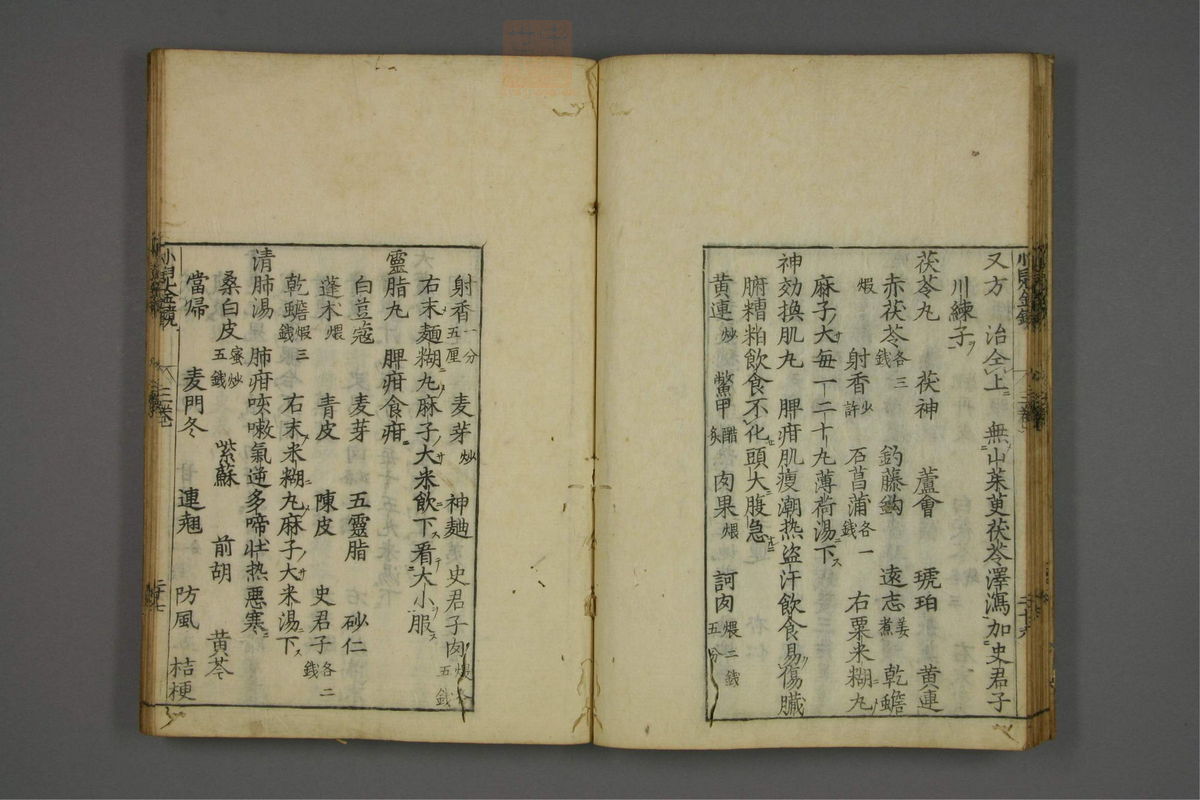 又方 治仝上ニ無山茱萸茯苓澤瀉加史君子
川練子
茯苓丸 茯神 蘆會 琥珀 黃連
赤茯苓各三錢 釣藤鈎 遠志姜煮 乾蟾
煆 射香少許 石菖蒲各一錢 右粟米糊丸
麻子大每一二十丸薄荷湯下
神効換肌丸 脾疳肌瘦潮热盜汗飲食易傷臟
腑糟粕飲食不化頭大腹急
黃連炒 鱉甲醋炙 肉果煨 訶肉煨二錢五分
射香一分五厘 麦芽炒 神麯 史君子肉
右末麺糊丸麻子大米飲下看大小服
靈脂丸 脾疳食疳
白荳蔻 麦芽 五靈脂 砂仁
蓬朮煨 青皮 陳皮 史君子各二錢
乾蟾煆三錢 右末米糊丸麻子大米湯下
清肺湯 肺疳咳嗽氣逆多啼壮热惡寒
桑白皮蜜炒五錢 紫蘇 前胡 黄芩
當帰 麦門冬 連翹 防風 桔梗